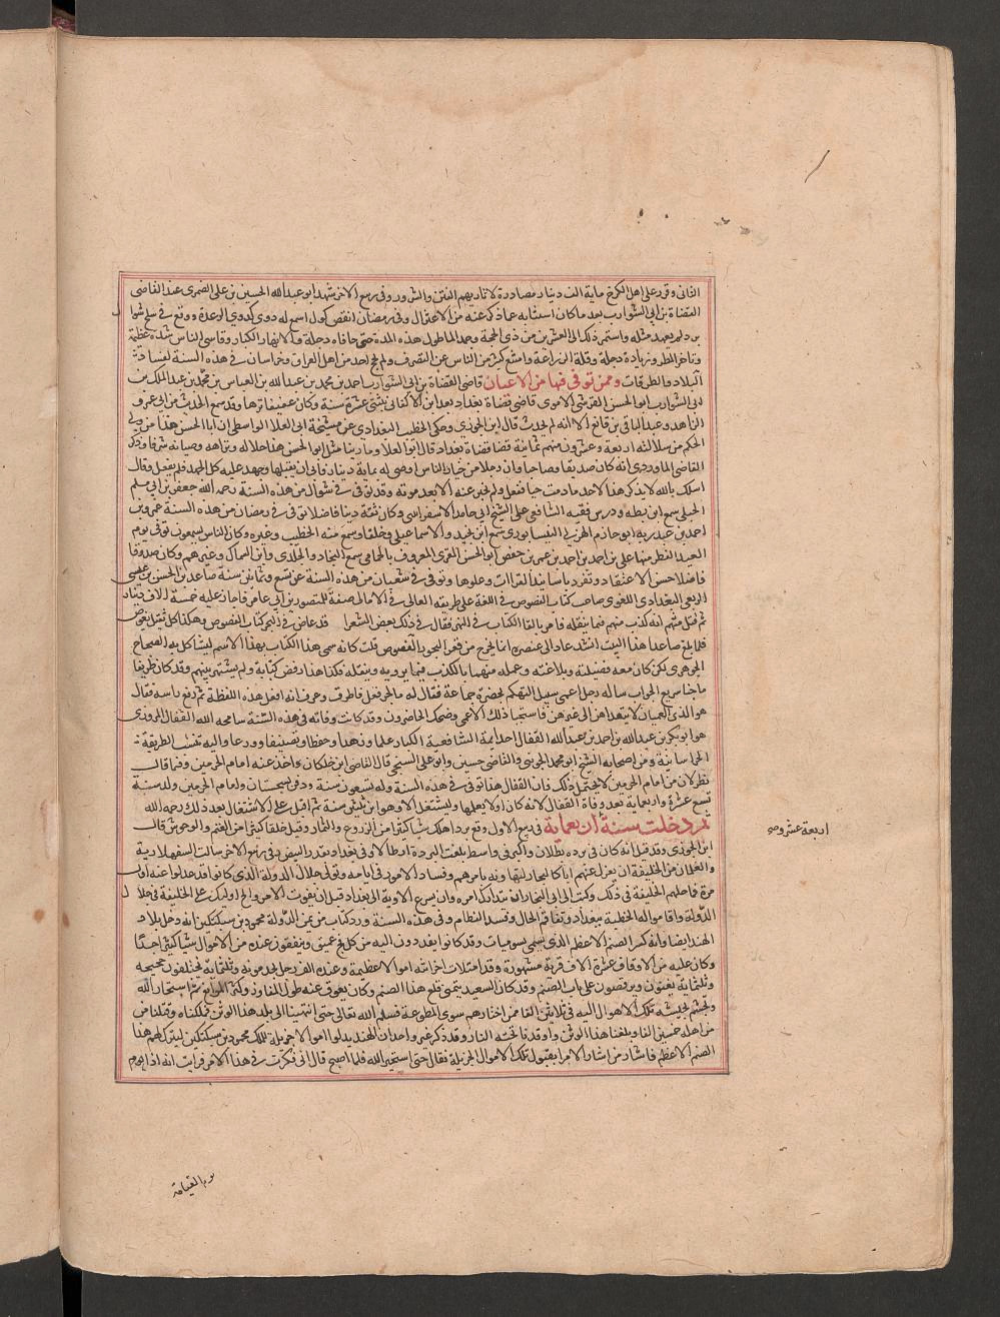 الثانى وقرر على اهل الكرخ ماية الف دينار مصادرة لاثارتهم الفتن والشرور وفى ربيع الاخر شهد ابو عبد الله الحسين بن على الصمرى عند القاضى
القضاة بن ابى الشوارب بعد ما كان استتابه عما ذكر عنه من الاعتزال وفى رمضان انقض كوكب اسمع له دوى كدوى الرعد ووقع فى سلخ شوا ل
برد لم يعهد مثله واستمر ذلك الى العشرين من ذى الحجة وجمد الما طول هذه المدة حتى حافات دجلة والانهار الكبار وقاسى الناس شدة عظيمة
وتاخر المطر وزيادة دجلة وقلة الزراعة وامتنع كثير من الناس عن التصرف ولم يحج احد من اهل العراق وخراسان فى هذه السنة لفساد
البلاد والطرقات وممن توفى فيها من الاعيان قاضى القضاة بن ابى الشوارب احمد بن محمد بن عبد الله بن العباس بن محمد بن عبد الملك بن
ابى الشوارب ابو الحسن القرشى الاموى قاضى قضاة بغداد بعد ابن الاكفانى بثنتى عشرة سنة وكان عفيفا نزها وقد سمع الحديث من ابى عمر و
الزاهد وعبد الباقى بن قانع الا انه لم يحدث قال ابن الجوزى وحكى الخطيب البغدادى عن مشيخة ابى العلا الواسطى ان ابا الحسن هذا من ولى
الحكم من سلالته اربعة وعشرون منهم ثمانية قضاة قضاة بغداد قال ابو العلا وما راينا مثل ابو الحسن هذا جلالة ونزاهة وصيانة وشرفا وذكر
القاضى الماوردى انه كان صديقا وصاحبا وان رجلا من خيار الناس اوصى له بماية دينار فابى ان يقبلها وجهد عليه كل الجهد فلم يفعل وقال
اسلك بالله لا يذكر هذا لاحد ما دمت حيا ففعل ولم يخبر عنه الا بعد موته وقد توفى فى شوال من هذه السنة رحمه الله جعفر بن ابى مسلم
الجبلى سمع ابن بطه ودرس فقيه الشافعى على الشيخ ابى حامد الاسفراينى وكان ثقة دينا فاضلا توفى فى رمضان من هذه السنة عمر بن
احمد بن عبدويه ابو حازم الهزلى النيسابورى سمع ابن نجيد والاسماعيلى وخلقا وسمع منه الخطيب وغيره وكان الناس يسمعون توفى يوم
العيد الفطر منها على بن احمد بن احمد بن عمر بن حفص ابو الحسن المقرى المعروف بالحمامى سمع النجاد والخلدى وابن السماك وغيرهم وكان صدوقا
فاضلا حسن الاعتقاد وتفرد باسانيد القراات وعلوها وتوفى فى شعبان من هذه السنة عن تسع وثمانين سنة صاعد بن الحسن بن عيسى
الربعى البغدادى اللغوى صاحب كتاب الفصوص فى اللغة على طريقة القالى فى الامالى صنفه للمنصور بن ابى عامر فاجاز عليه خمسة الاف دينار
ثم قيل متهم انه كذب منهم فيما ينقله فامر بالقا الكتاب فى النهر فقال فى ذلك بعض الشعرا قد غاض فى البحر كتاب الفصوص وهكذا كل ثقيل يغوص
فلما بلغ صاعدا هذا البيت انشد عاد الى عنصره انما يخرج من قعر البحور الفصوص قلت كانه سمى هذا الكتاب بهذا الاسم ليشاكل به الصحاح
الجوهرى لكن كان معه فضيلته وبلاغته وعلمه متهما بالكذب فيما يرويه وينقله فلهذا رفض كتابه ولم يشتهر بينهم وقد كان ظريفا
ماجنا سريع الجواب ساله رجل اعمى على سبيل التهكم بحضرة جماعة فقال له ما الجرنفل فاطرق وعرف انه افتعل هذه اللفظة ثم رفع راسه فقال
هو الذى العميان لا يتعداهن الى غيرهن فاستحيا ذلك الاعمى وضحك الحاضرون وقد كانت وفاته فى هذه السنة سامحه الله القفال المروزى
هو ابو بكر بن عبد الله بن احمد بن عبد الله القفال احد ايمة الشافعية الكبار علما وزهدا وحفظا وتصنيفا وورعا واليه تنسب الطريقة
الخراسانية ومن اصحابه الشيخ ابو محمد الجوينى والقاضى حسين وابو على السنجى قال القاضى ابن خلكان واخذ عنه امام الحرمين وفيما قاله
نظر لان من امام الحرمين لا يحتمل ذلك فان القفال هذا توفى فى هذه السنة وله تسعون سنة ودفن بسجستان وامام الحرمين ولد سنة
تسع عشرة واربعماية بعد وفاة القفال لانه كان اولا يعملها ولم يشتغل الا وهو ابن ثلثين سنة ثم اقبل على الاشتغال بعد ذلك رحمه الله
ثم دخلت سنة ثمان
اربعماية فى ربيع الاول وقع برد اهلك شيا كثيرا من الزروع والثمار وقيل خلقا كثيرا من الغنم والوحوش قال
ابن الجوزى وقد قيل انه كان فى برده رطلان واكبر وفى واسط بلغت البردة ارطالا وفى بغداد بقدر البيض وفى ربيع الاخر سالت السفهلارية
والغلمان من الخليفة ان يعزل عنهم ابا كاليجار لتهاونه بامرهم وفساد الامور فى ايامه وتولى جلال الدولة الذى كانوا قد عدلوا عنه اول
مرة فماطلهم الخليفة فى ذلك وكتب الى ابى كاليجار ان يتدارك امره وان يسرع الاوبة الى بغداد قبل ان يفوت الامر والح اوليك على الخليفة فى جلا ل
الدولة واقاموا له الخطبة ببغداد وتفاقم الحال وفسد النظام وفى هذه السنة ورد كتاب من يمين الدولة محمود بن سبكتكين انه دخل بلاد
الهند ايضا وانه كسر الصنم الاعظم الذى يسمى بسومنات وقد كانوا يفدون اليه من كل فج عميق وينفقون عنده من الاموال شيا كثيرا جدا
وكان عليه من الاوقاف عشرة الاف قرية مشهورة وقد امتلات خزائنه اموالا عظيمة وعنده الف رجل يخدمونه وثلثماية يحلقون حجيجه
وثلثماية يغنون ويرقصون على باب الصنم وقد كان السعيد يتمنى قلع هذا الصنم وكان يعوق عنه طول المفاوز وكثرة الموانع ثم استخار الله
وتجشم بجيشه تلك الاهوال اليه فى ثلاثين الفا ممن اختارهم سوى المطوعة فسلم الله تعالى حتى انتهينا الى بلد هذا الوثن فملكناه وقتلنا من
من اهله خمسين الفا وبلغنا هذا الوثن واوقد تحته النار وقد ذكر غير واحد ان الهند بدلوا اموالا جزيلة للملك محمود بن سبكتكين ليترك لهم هذا
الصنم الاعظم فاشار من اشار الامرا بقبول تلك الاموال الجزيلة فقال حتى استخير الله فلما اصبح قال انى فكرت فى هذا الامر فرايت انه اذا
اربعة عشر
يوم القيامة